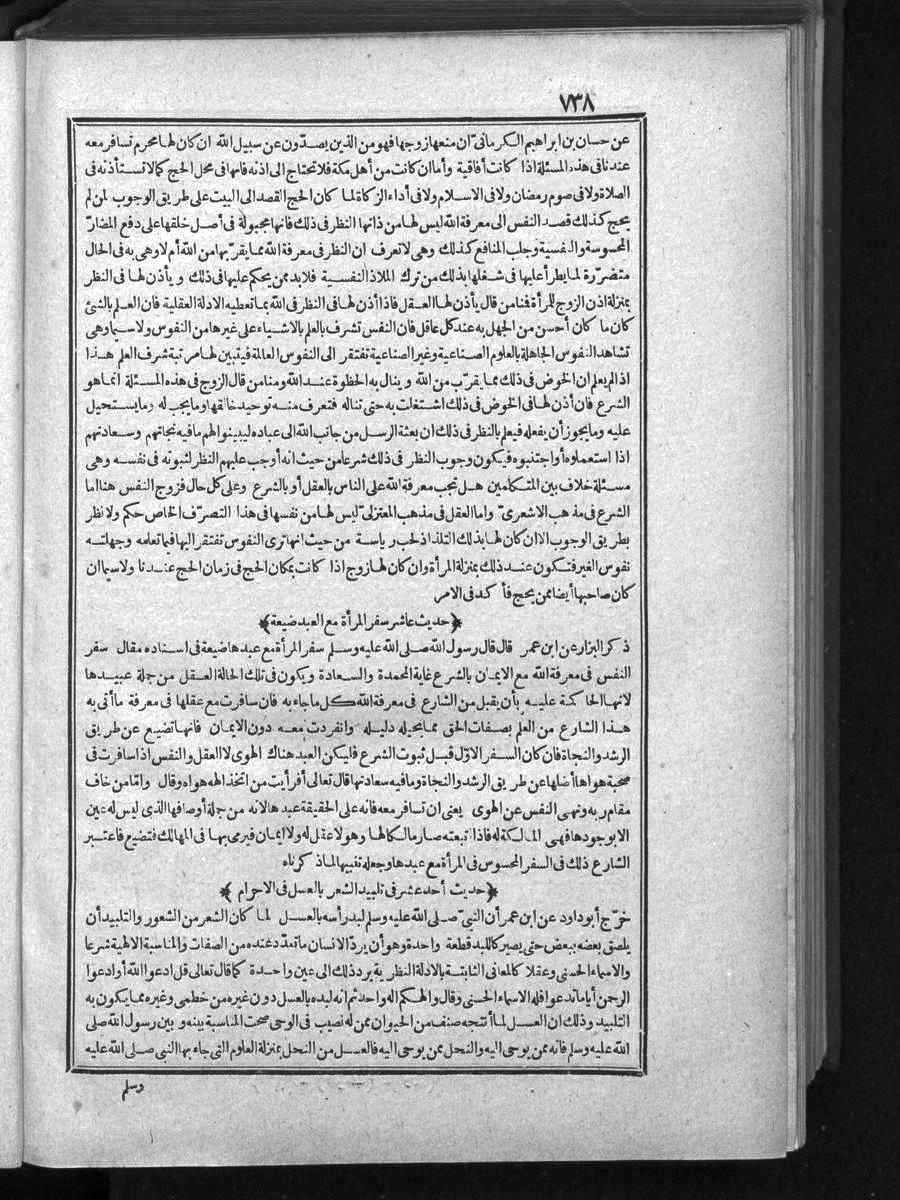 ٧٣٨
عن حسان بن ابراهيم الكرمانىّ ان منعها زوجها فهو من الذين يصدّون عن سبيل الله ان كان لها محرم تسافر معه
عندنا فى هذه المسئلة اذا كانت أفاقية وأما ان كانت من أهل مكة فلا تحتاج الى اذنه فانها فى محل الحج كما لا تستأذنه فى
الصلاة ولا فى صوم رمضان ولا فى الاسلام ولا فى أداء الزكاة لما كان الحج القصد الى البيت على طريق الوجوب لمن لم
يحج كذلك قصد النفس الى معرفة الله ليس لها من ذاتها النظر فى ذلك فانها مجبولة فى أصل خلقها على دفع المضارّ
المحسوسة والنفسية وجلب المنافع كذلك وهى لا تعرف ان النظر فى معرفة الله مما يقرّبها من الله أم لا وهى به فى الحال
متضرّرة لما يطرأ عليها فى شغلها بذلك من ترك الملاذ النفسية فلا بد ممن يحكم عليها فى ذلك و يأذن لها فى النظر
بمنزلة اذن الزوج للمرأة فمنا من قال يأذن لها العقل فاذا أذن لها فى النظر فى الله بما تعطيه الادلة العقلية فان العلم بالشئ
كان ما كان أحسن من الجهل به عند كل عاقل فان النفس تشرف بالعلم بالاشياء على غيرها من النفوس ولا سيما وهى
تشاهد النفوس الجاهلة بالعلوم الصناعية وغير الصناعية تفتقر الى النفوس العالمة فيتبين لها مرتبة شرف العلم هذا
اذا لم يعلم ان الخوض فى ذلك مما يقرّب من الله و ينال به الحظوة عند الله ومنا من قال الزوج فى هذه المسئلة انما هو
الشرع فان أذن لها فى الخوض فى ذلك اشتغلت به حتى تناله فتعرف منه توحيد خالقها وما يجب له وما يستحيل
عليه وما يجوز أن يفعله فيعلم بالنظر فى ذلك ان بعثة الرسل من جانب الله الى عباده ليبينوا لهم ما فيه نجاتهم وسعادتهم
اذا استعملوه أو اجتنبوه فيكون وجوب النظر فى ذلك شرعا من حيث انه أوجب عليهم النظر لثبوته فى نفسه وهى
مسئلة خلاف بين المتكلمين هل تجب معرفة الله على الناس بالعقل أو بالشرع وعلى كل حال فزوج النفس هنا اما
الشرع فى مذهب الاشعرىّ واما العقل فى مذهب المعتزلىّ ليس لها من نفسها فى هذا التصرّف الخاص حكم ولا نظر
بطريق الوجوب الا ان كان لها بذلك التلذاذ لحب رياسة من حيث انها ترى النفوس تفتقر اليها فيما تعلمه وجهلته
نفوس الغير فتكون عند ذلك بمنزلة المرأة وان كان لها زوج اذا كانت بمكان الحج فى زمان الحج عندنا ولا سيما ان
كان صاحبها أيضا ممن يحج فأ كد فى الامر
﴿حديث عاشر سفر المرأة مع العبد ضيعة﴾
ذكر البزار عن ابن عمر قال قال رسول الله صلى الله عليه وسلم سفر المرأة مع عبدها ضيعة فى اسناده مقال سفر
النفس فى معرفة الله مع الايمان بالشرع غاية المحمدة والسعادة ويكون فى تلك الحالة العقل من جملة عبيدها
لانها الحاكمة عليه بأن يقبل من الشارع فى معرفة الله كل ما جاء به فان سافرت مع عقلها فى معرفة ما أتى به
هذا الشارع من العلم بصفات الحق مما يحيله دليله وانفردت معه دون الايمان فانها تضيع عن طريق
الرشد والنجاة فان كان السفر الاوّل قبل ثبوت الشرع فليكن العبد هناك الهوى لا العقل والنفس اذا سافرت فى
صحبة هواها أضلها عن طريق الرشد والنجاة وما فيه سعادتها قال تعالى أفرأيت من اتخذ الهه هواه وقال وامّا من خاف
مقام ربه ونهى النفس عن الهوى يعنى ان تسافر معه فانه على الحقيقة عبدها لانه من جملة أوصافها الذى ليس له عين
الا بوجودها فهى المالكة له فاذا تبعته صار مالكا لها وهو لا عقل له ولا ايمان فيرمى بها فى المهالك فتضيع فاعتبر
الشارع ذلك فى السفر المحسوس فى المرأة مع عبدها وجعله تنبيها لما ذكرناه
﴿حديث أحد عشر فى تلبيد الشعر بالعسل فى الاحرام﴾
خرّج أبو داود عن ابن عمر أن النبىّ صلى الله عليه وسلم لبد رأسه بالعسل لما كان الشعر من الشعور والتلبيد أن
يلصق بعضه ببعض حتى يصير كاللبد قطعة واحدة وهو أن يردّ الانسان ما تعدّد عنده من الصفات والمناسبة الالهية شرعا
والاسماء الحسنى وعقلا كالمعانى الثابتة بالادلة النظرية يرد ذلك الى عين واحدة كما قال تعالى قل ادعوا الله أو ادعوا
الرحمن أياما تدعوا فله الاسماء الحسنى وقال والهكم اله واحد ثم انه لبده بالعسل دون غيره من خطمى وغيره مما يكون به
التلبيد وذلك ان العسل لما أنتجه صنف من الحيوان ممن له نصيب فى الوحى صحت المناسبة بينه و بين رسول الله صلى
الله عليه وسلم فانه ممن يوحى اليه والنحل ممن يوحى اليه فالعسل من النحل بمنزلة العلوم التى جاء بها النبى صلى الله عليه
وسلم